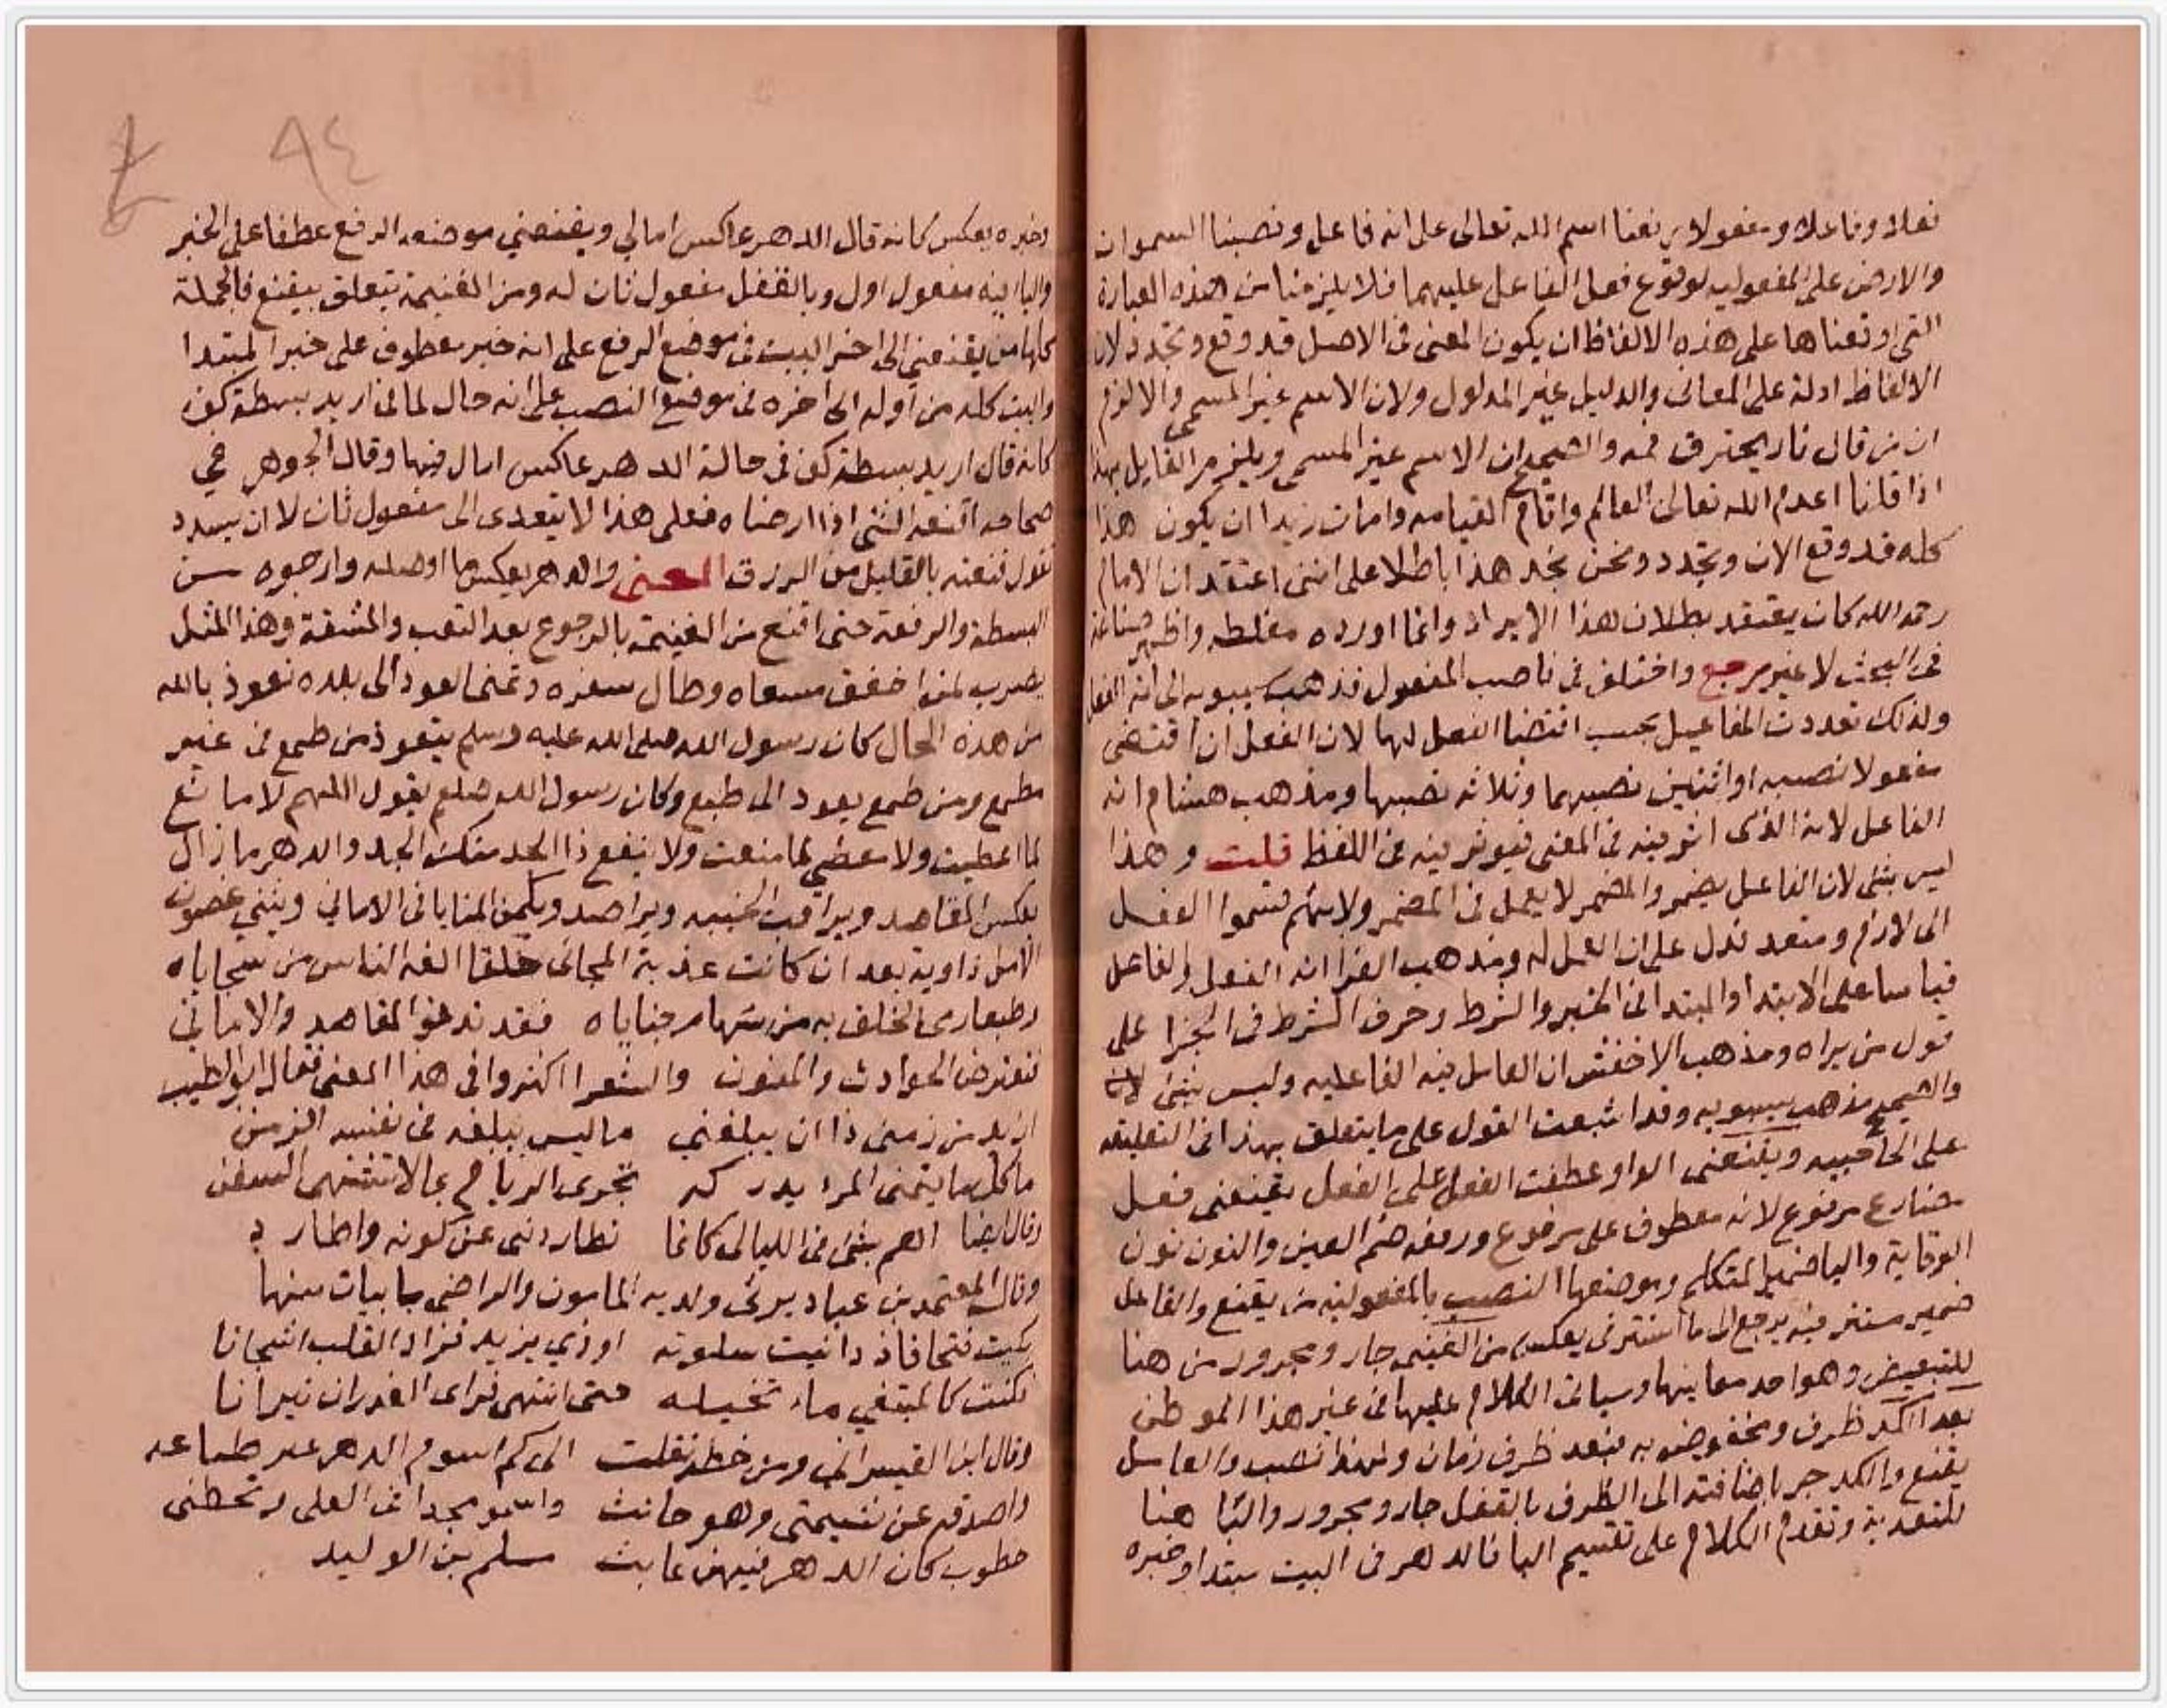 فعلا وفاعلا ومفعولا برفعنا اسم الله تعالى على انه فاعل ونصبنا السموات
والارض على المفعوليه لوقوع فعل الفاعل عليهما فلا يلزمنا من هذه العبارة
التى اوقعناها على هذه الالفاظ ان يكون المعنى فى الاصل قد وقع وتجدد لان
الالفاظ ادلة على المعانى والدليل غير المدلول ولان الاسم غير المسمى والا لزم
ان من قال نار يحترق فمه والصحيح ان الاسم غير المسمى ويلزم القايل بهذا
اذا قلنا اعدم الله تعالى العالم واقام القيامه وامات زيدا ان يكون هذا
كله قد وقع الان وتجدد ونحن نجد هذا باطلا على اننى اعتقد ان الامام
رحمه الله كان يعتقد بطلان هذا الايراد وانما اورده مغلطه واظهر صناعة
فى البحث لا غير مرجع واختلف فى ناصب المفعول فذهب سيبويه الى انه الفعل
ولذلك تعددت المفاعيل بحسب اقتضا الفعل لها لان الفعل ان اقتضى
مفعولا نصبه او اثنين نصبهما وثلاثه نصبها ومذهب هشام انه
الفاعل لانه الذى اثر فيه فى المعنى فيوثر فيه فى اللفظ قلت وهذا
ليس بشى لان الفاعل يضمر والمضمر لا يعمل فى المضمر ولانهم قسموا الفعل
الى لازم ومتعد فدل على ان العمل له ومذهب الفرا انه الفعل والفاعل
قياسا على الابتدا والمبتدا فى الخبر والشرط وحرف الشرط فى الجزا على
قول من يراه ومذهب الاخفش ان العامل فيه الفاعليه وليس بشى لان
والصحيح مذهب سيبويه وقد اشبعت القول على ما يتعلق بهذا فى التعليقه
على الحاجبيه ويقنعنى الواو عطفت الفعل على الفعل يقنعنى فعل
مضارع مرفوع لانه معطوف على مرفوع ورفعه ضم العين والنون نون
الوقاية واليا ضمير المتكلم وموضعها النصب بالمفعوليه من يقنع والفاعل
ضمير مستتر فيه يرجع الى ما استتر فى يعكس من الغنيمه جار ومجرور من هنا
للتبعيض وهو احد معانيها وسياتى الكلام عليها فى غير هذا الموطن
بعد الكد ظرف ومخفوض به فبعد ظرف زمان ولهذا نصب والعامل
يقنع والكد جر باضافته الى الظرف بالقفل جار ومجرور والبا هنا
للتعدية وتقدم الكلام على تقسيم البا فالدهر فى البيت مبتدا وخبره
وخبره يعكس كانه قال الدهر عاكس امالي ويقنعني موضعه الرفع عطفا على الخبر
واليا فيه مفعول اول وبالقفل مفعول ثان له ومن الغنيمة يتعلق بيقنع فالجملة
كلها من يقنعني الى اخر البيت فى موضع الرفع على انه خبر معطوف على خبر المبتدا
والبيت كله من اوله الى اخره فى موضع النصب على انه حال لما فى اريد بسطة كف
كانه قال اريد بسطة كف فى حالة الدهر عاكس امال فيها وقال الجوهرى فى
صحاحه اقنعه الشى اذا ارضاه فعلى هذا لا يتعدى الى مفعول ثان لا ان يسدد
تقول قنعته بالقليل من الرزق المعنى والدهر يعكس ما اوصله وارجوه من
البسطة والرفعة حتى اقنع من الغنيمة بالرجوع بعد التعب والمشقة وهذا المثل
يضرب لمن اخفق مسعاه وطال سفره وتمنى العود الى بلده نعوذ بالله
من هذه الحال كان رسول الله صلى الله عليه وسلم يتعوذ من طمع فى غير
مطمع ومن طمع يعود الى طبع وكان رسول الله صلعم يقول اللهم لا مانع
لما اعطيت ولا معطي لما منعت ولا ينفع ذا الجد منك الجد والدهر ما زال
يعكس المقاصد ويراقب الخيبه ويراصد ويكمن المنايا فى الاماني ويثني غصون
الامل ذاوية بعد ان كانت عذبة المجانى خلقا الفه الناس من سجاياه
وطبعا رمى الخلف به من سهام جناياه فقد تدنو المقاصد والاماني
فتعترض الحوادث والمنون والشعرا اكثروا فى هذا المعنى فقال ابو الطيب
اريد من زمنى ذا ان يبلغني ما ليس يبلغه فى نفسه الزمن
ما كل ما يتمنى المرء يدركه تجرى الرياح بما لا تشتهى السفن
وقال ايضا اهم بشى فى الليالى كانما تطاردنى عن كونه واطارد
وقال المعتمد بن عباد يرثى ولديه المامون والراضى بابيات منها
بكيت فتحا فاذ دانيت سلوته اودي يزيد فزاد القلب اشجانا
فكنت كالمبتغي ماء تخيله حتى انتهى فراى الغدران نيرانا
وقال ابن القيسرانى ومن خطه نقلت الى كم اسوم الدهر غير طباعه
واصدقه عن شيمتى وهو حانث واسمو مجدا فى العلى وتحطنى
خطوب كان الدهر فيهن عابث مسلم بن الوليد
٩٤